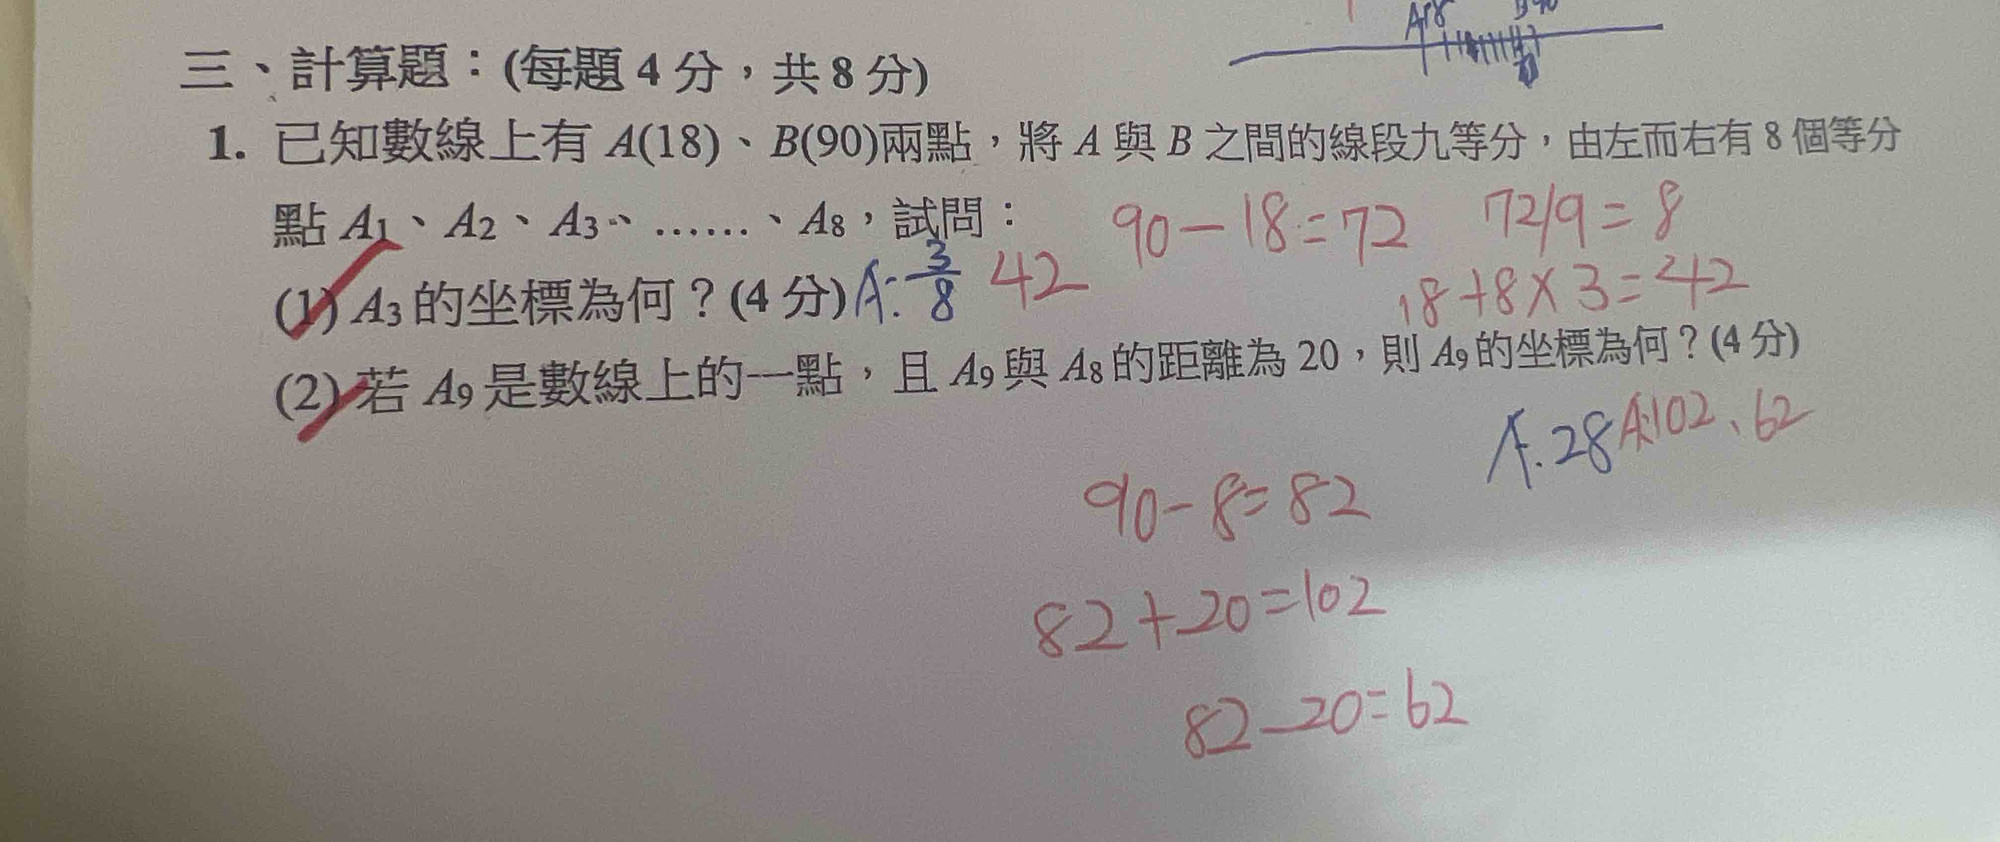 A18 B90
三、計算題：(每題 4 分，共 8 分)
1. 已知數線上有 A(18)、B(90)兩點，將 A 與 B 之間的線段九等分，由左而右有 8 個等分
點 A1、A2、A3、……、A8，試問：
90-18=72 72/9=8
(1) A3 的坐標為何？(4 分) A: 3/8 42
18+8×3=42
(2) 若 A9 是數線上的一點，且 A9 與 A8 的距離為 20，則 A9 的坐標為何？(4 分)
A. 28 A:102、62
90-8=82
82+20=102
82-20=62